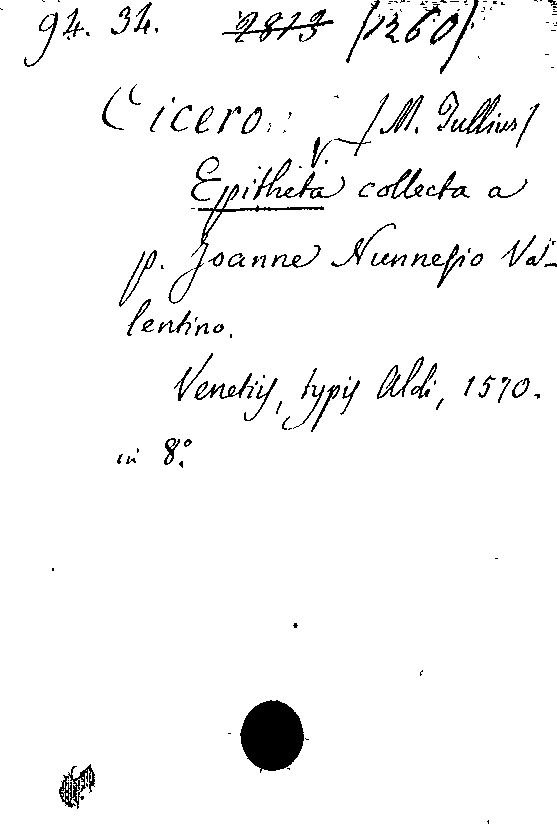 94. 34. 2813 /1260/
Cicero. /M. Tullius/
V.
Epitheta collecta a
p. Joanne Nunnesio Va-
lentino.
Venetiis, typis Aldi, 1570.
in 8°.